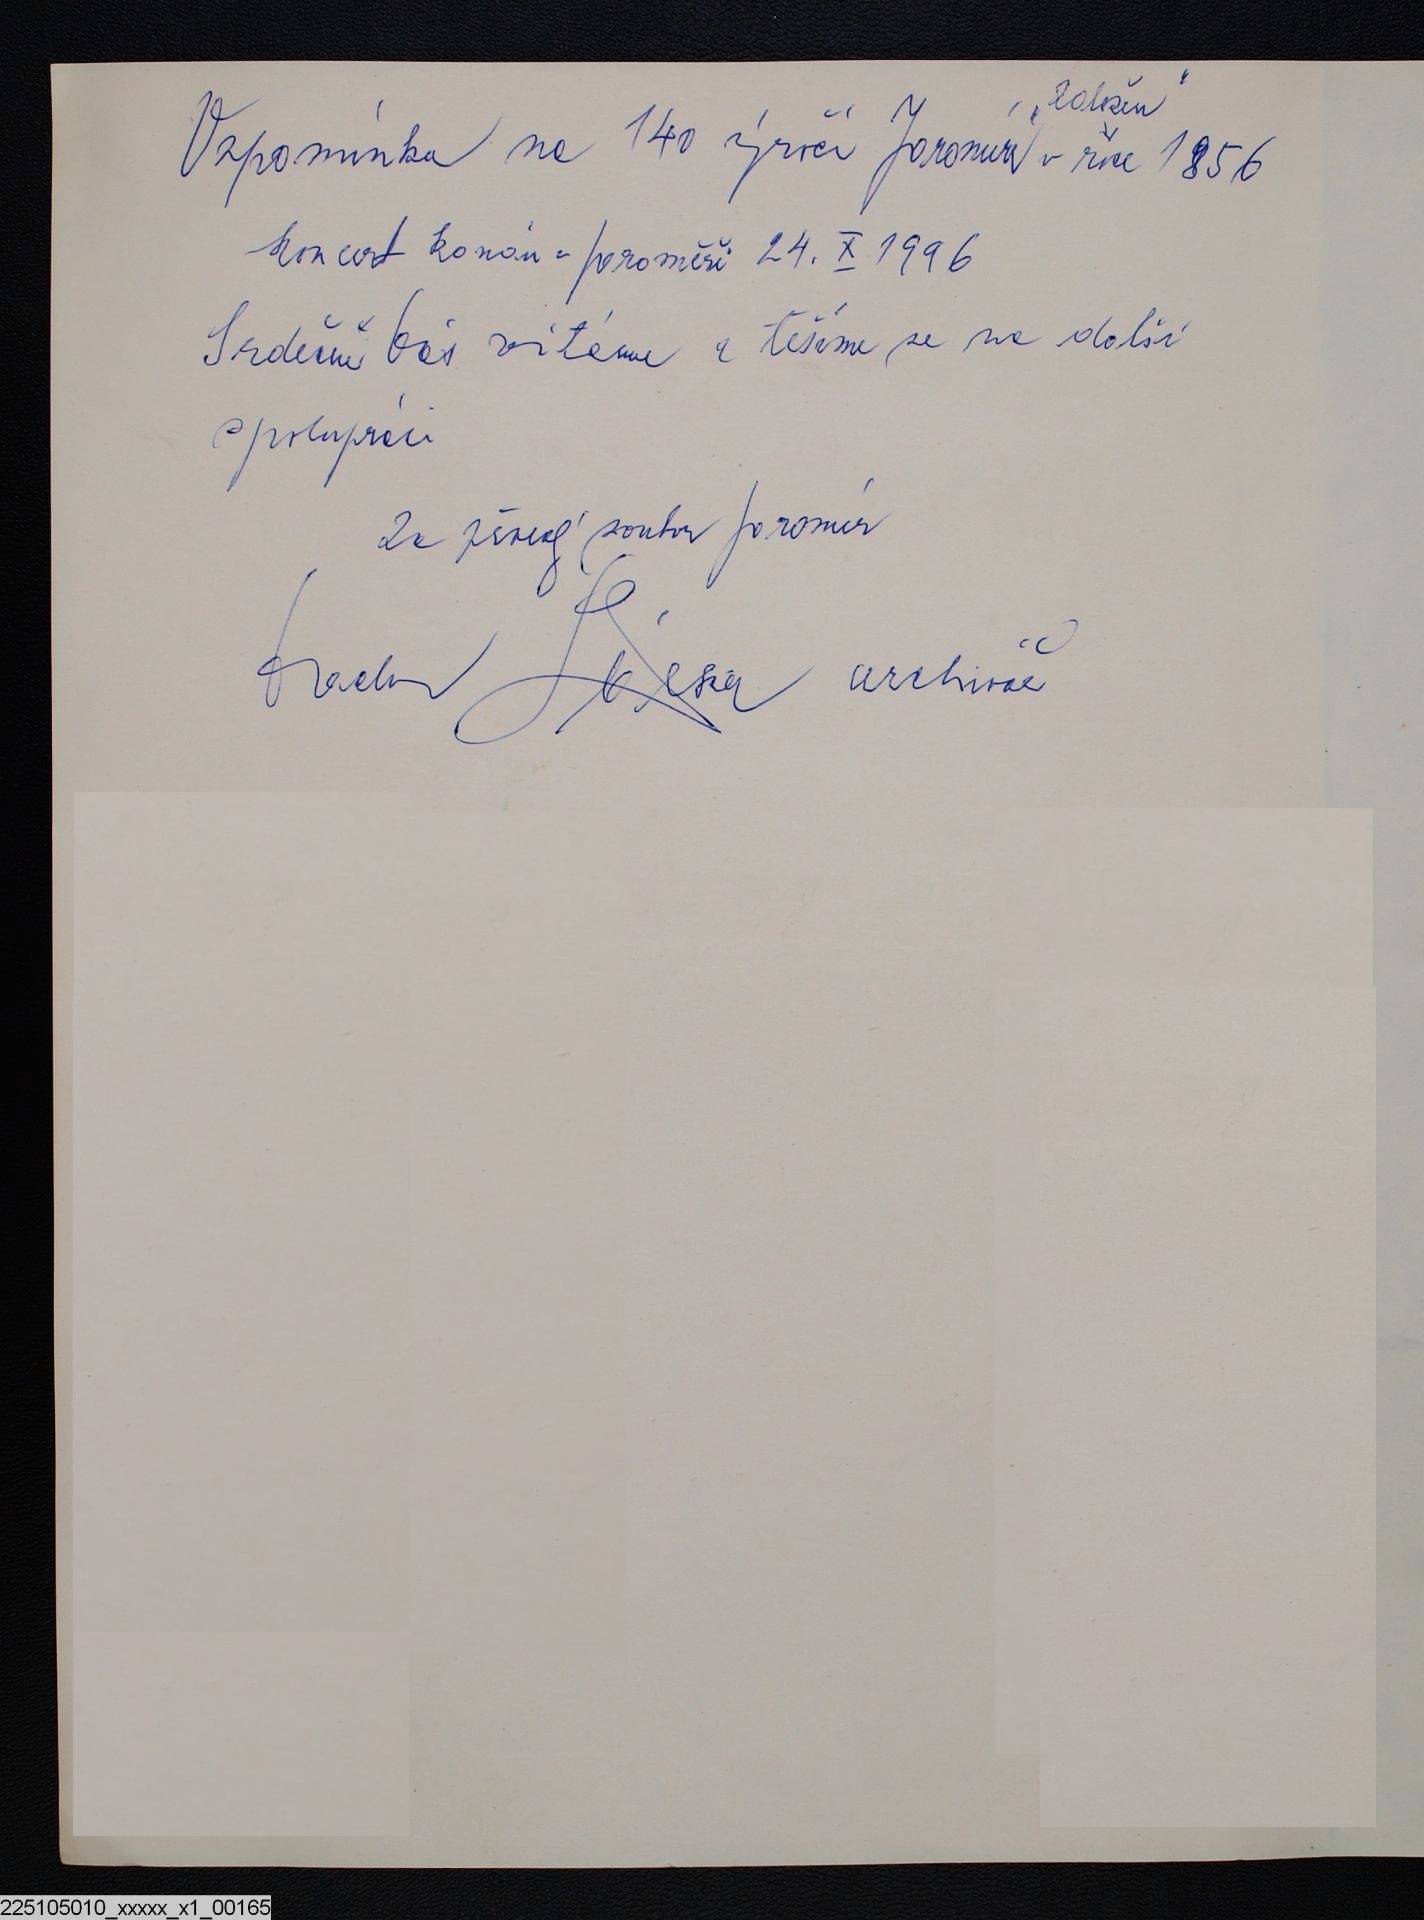 Vzpomínka na 140 výročí Jaromír „založen“ v roce 1856
koncert konán v Jaroměři 24. X 1996
Srdečně Vás vítáme a těšíme se na další
spolupráci
Za pěvecký soubor Jaromír
archivář
225105010_xxxxx_x1_00165